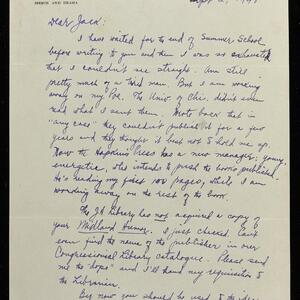 SPEECH AND DRAMA
Dear Jack:
I have waited for the end of Summer School
before writing to you and then I was so exhausted
that I couldn't see straight. Am still
pretty much of a tired man. But I am working
away on my Poe. The Univ of Chi. didn't even
read what I sent them. Wrote back that in
"any case" they couldn't publish it for a few
years and they thought it best not to hold me up.
Now the Hopkins Press has a new manager, young,
energetic, who intends to push the books published.
He's reading my first 100 pages, while I am
working away on the rest of the book.
The Library has not acquired a copy of
your Midland Humor. I just checked. Can't
even find the name of the publisher in our
Congressional Library catalogue. Please send
me the "dope" and I'll hand my requisition to
the Librarian.
By now you should be used to